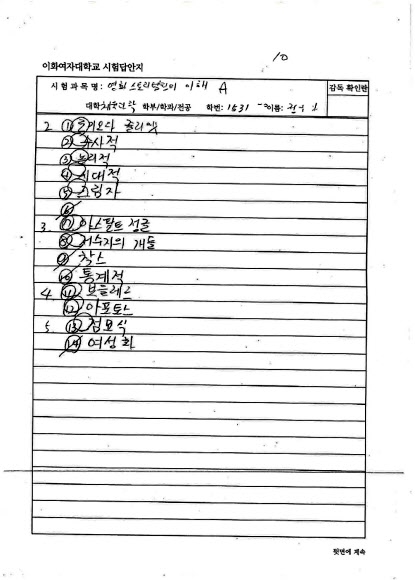 10
이화여자대학교 시험답안지
시험과목명: 영화스토리텔링의 이해 A
감독 확인란
대학 학부/학과/전공 학번: 1631 이름:
2 ① 줄리엣
② 수사적
③ 논리적
④ 시대적
⑤ 그림자
⑥
3 ⑦ 아스팔트 정글
⑧ 저수지의 개들
⑨
⑩ 통계적
4 ⑪ 보들레르
⑫
5 ⑬ 정모식
⑭ 여성화
뒷면에 계속